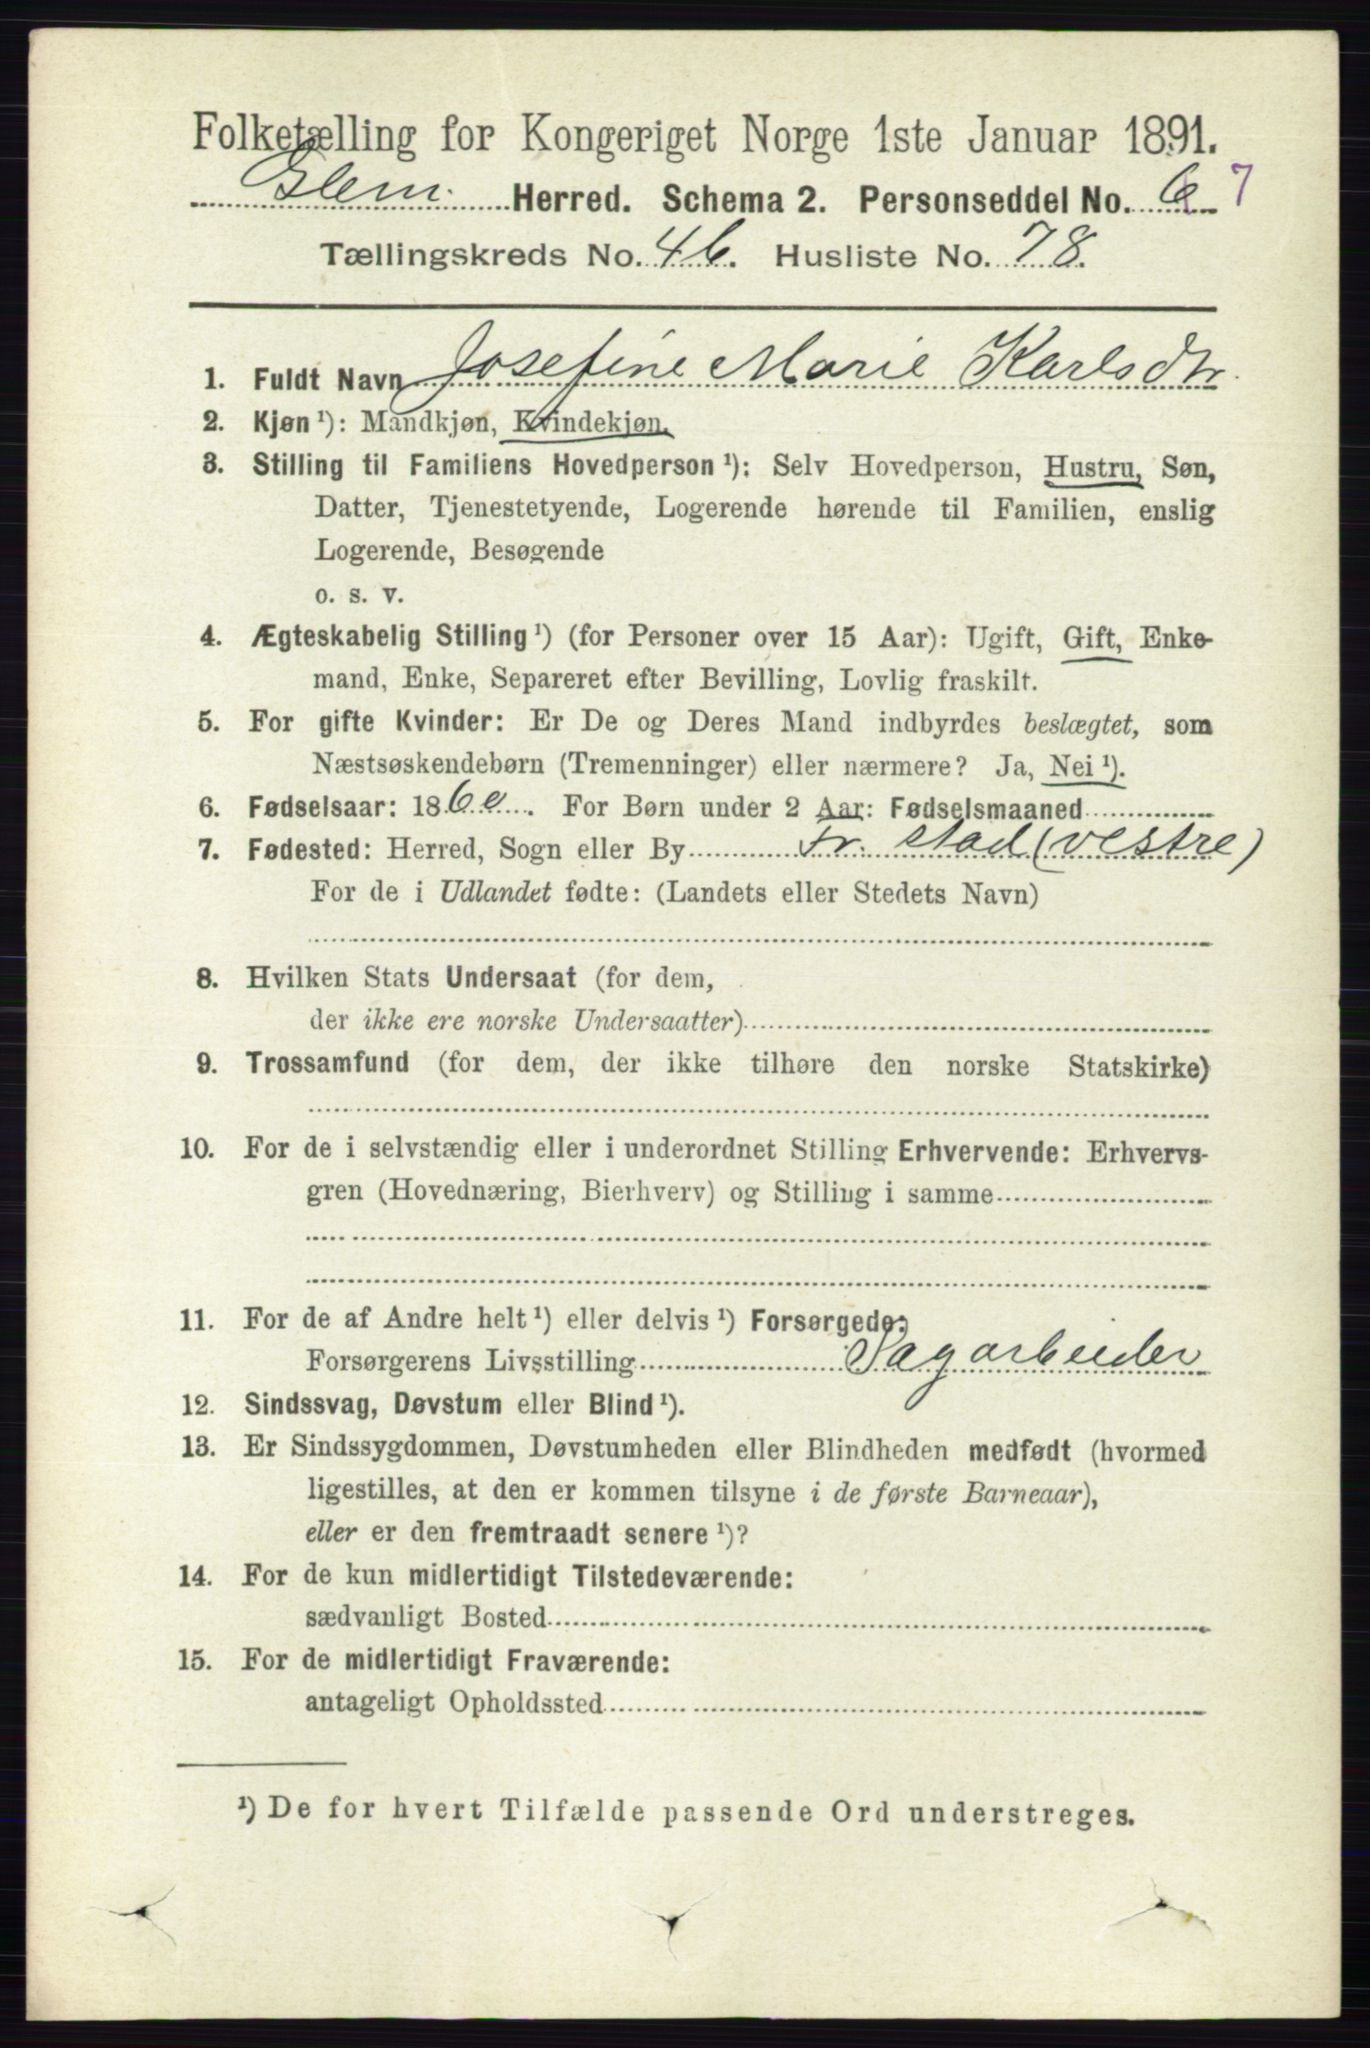 Folketælling for Kongeriget Norge 1ste Januar 1891.
Glem. Herred. Schema 2. Personseddel No. 6 7
Tællingskreds No. 46. Husliste No. 78.
1. Fuldt Navn Josefine Marie Karlsdtr.
2. Kjøn ¹): Mandkjøn, Kvindekjøn.
3. Stilling til Familiens Hovedperson ¹): Selv Hovedperson, Hustru, Søn,
Datter, Tjenestetyende, Logerende hørende til Familien, enslig
Logerende, Besøgende
o. s. v.
4. Ægteskabelig Stilling ¹) (for Personer over 15 Aar): Ugift, Gift, Enke-
mand, Enke, Separeret efter Bevilling, Lovlig fraskilt.
5. For gifte Kvinder: Er De og Deres Mand indbyrdes beslægtet, som
Næstsøskendebørn (Tremenninger) eller nærmere? Ja, Nei ¹).
6. Fødselsaar: 1860. For Børn under 2 Aar: Fødselsmaaned
7. Fødested: Herred, Sogn eller By Fr. stad (vestre)
For de i Udlandet fødte: (Landets eller Stedets Navn)
8. Hvilken Stats Undersaat (for dem,
der ikke ere norske Undersaatter)
9. Trossamfund (for dem, der ikke tilhøre den norske Statskirke)
10. For de i selvstændig eller i underordnet Stilling Erhvervende: Erhvervs-
gren (Hovednæring, Bierhverv) og Stilling i samme
11. For de af Andre helt ¹) eller delvis ¹) Forsørgede:
Forsørgerens Livsstilling Sagarbeider
12. Sindssvag, Døvstum eller Blind ¹).
13. Er Sindssygdommen, Døvstumheden eller Blindheden medfødt (hvormed
ligestilles, at den er kommen tilsyne i de første Barneaar),
eller er den fremtraadt senere ¹)?
14. For de kun midlertidigt Tilstedeværende:
sædvanligt Bosted
15. For de midlertidigt Fraværende:
antageligt Opholdssted
¹) De for hvert Tilfælde passende Ord understreges.